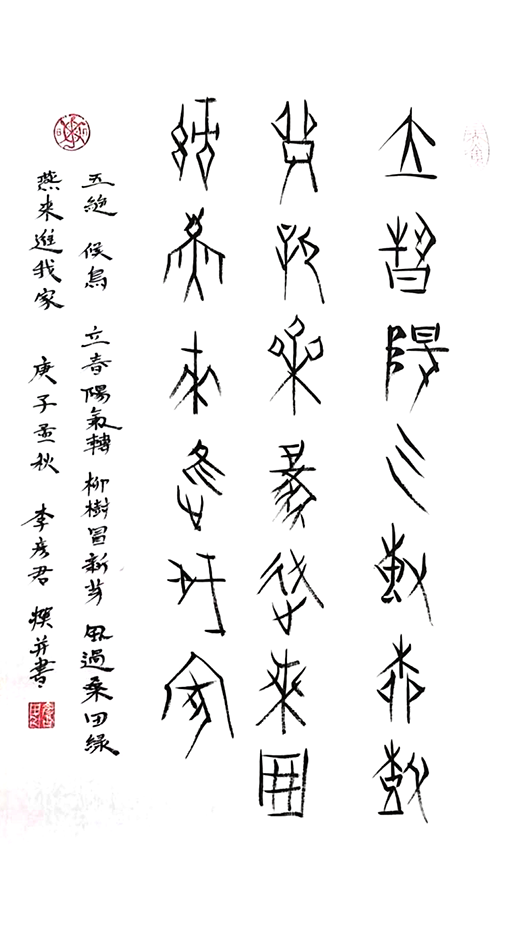 立春陽氣轉柳樹
冒新芽風過桑田
綠燕來進我家
五絕 候鳥 立春陽氣轉 柳樹冒新芽 風過桑田綠
燕來進我家 庚子孟秋 李彦君 撰并書